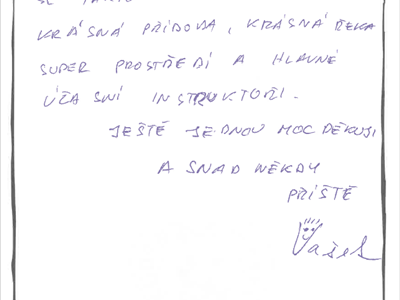 KRÁSNÁ PŘÍDODA, KRÁSNÁ ŘEKA
SUPER PROSTŘEDÍ A HLAVNĚ
ÚŽA SNÍ INSTRUKTOŘI.
JEŠTĚ JEDNOU MOC DĚKUJI
A SNAD NĚKDY
PŘÍŠTĚ
Vašek